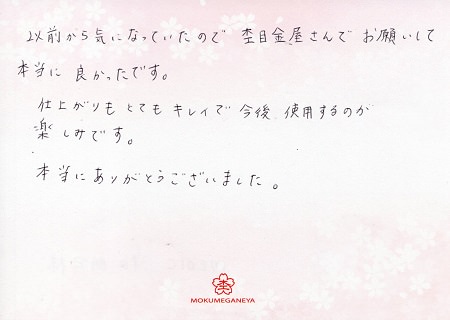 以前から気になっていたので 杢目金屋さんで お願いして
本当に 良かったです。
仕上がりも とても キレイで 今後 使用するのが
楽しみです。
本当に ありがとうございました。
杢
MOKUMEGANEYA